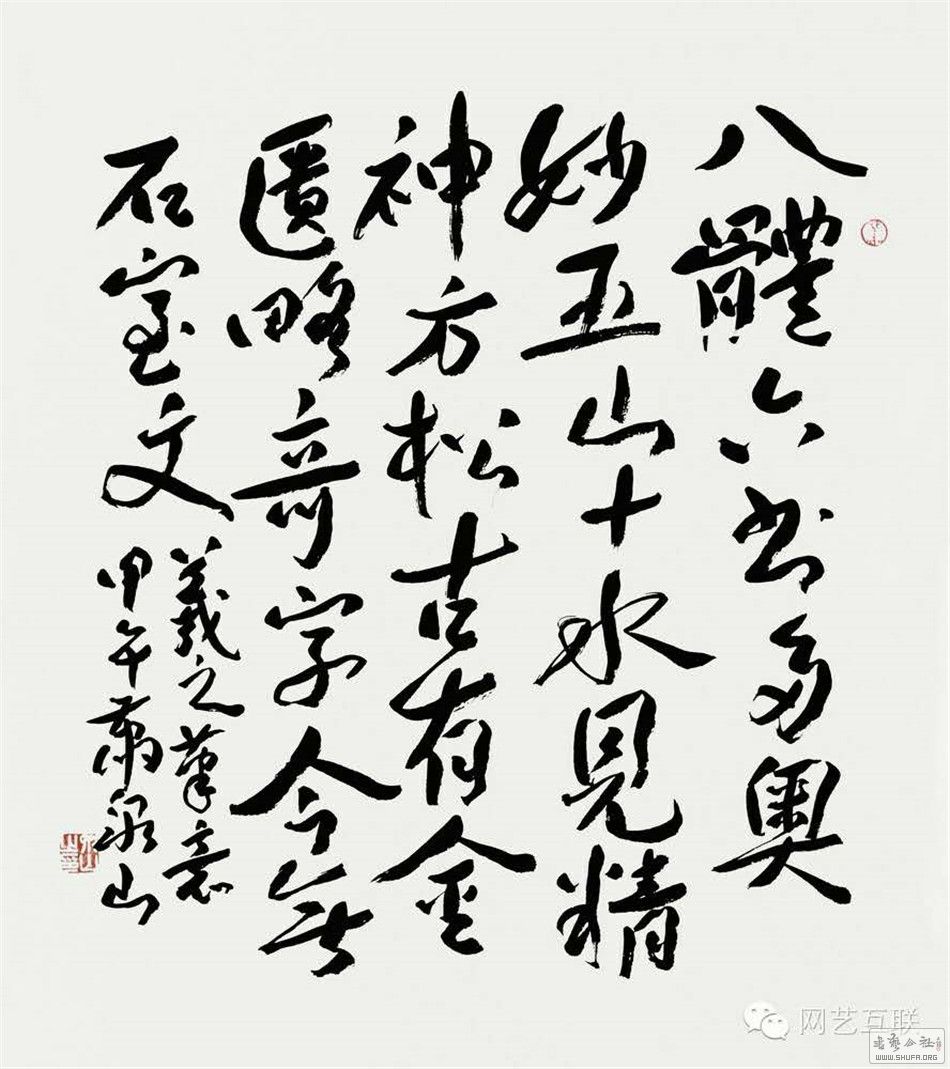 八體六书多奥
妙五山十水見精
神方松古有金
匱略奇字今無
石室文
羲之筆意
甲午蕭山
网艺互联
书艺公社
WWW.SHUFA.ORG